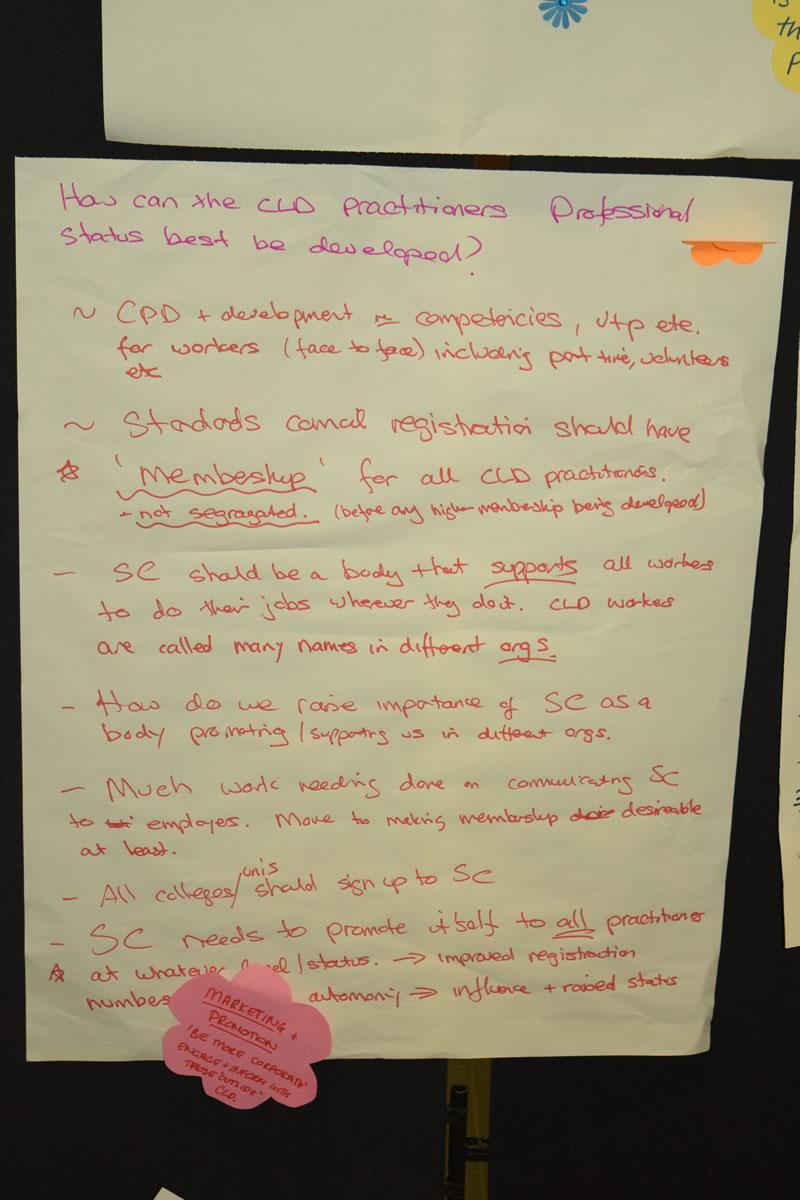 is
th
P
How can the CLD Practitioners Professional
status best be developed?
~ CPD + development ~ competencies, v+p etc.
for workers (face to face) including part time, volunteers
etc
~ Standards council registration should have
☆ 'Membeship' for all CLD practitioners.
- not segragated. (before any higher membership being developed)
- SC should be a body that supports all workers
to do their jobs wherever they do it. CLD workes
are called many names in different orgs.
- How do we raise importance of SC as a
body promoting/supporting us in different orgs.
- Much work needing done on communicating SC
to employers. Move to making membership desireable
at least.
- All colleges/unis should sign up to SC
- SC needs to promote itself to all practitioner
☆ at whatever level/status. → improved registration
numbers autonomy → influence + raised status
MARKETING +
PROMOTION
'BE MORE CORPORATE'
ENGAGE + INFORM WITH
THOSE 'OUTSIDE'
CLD.